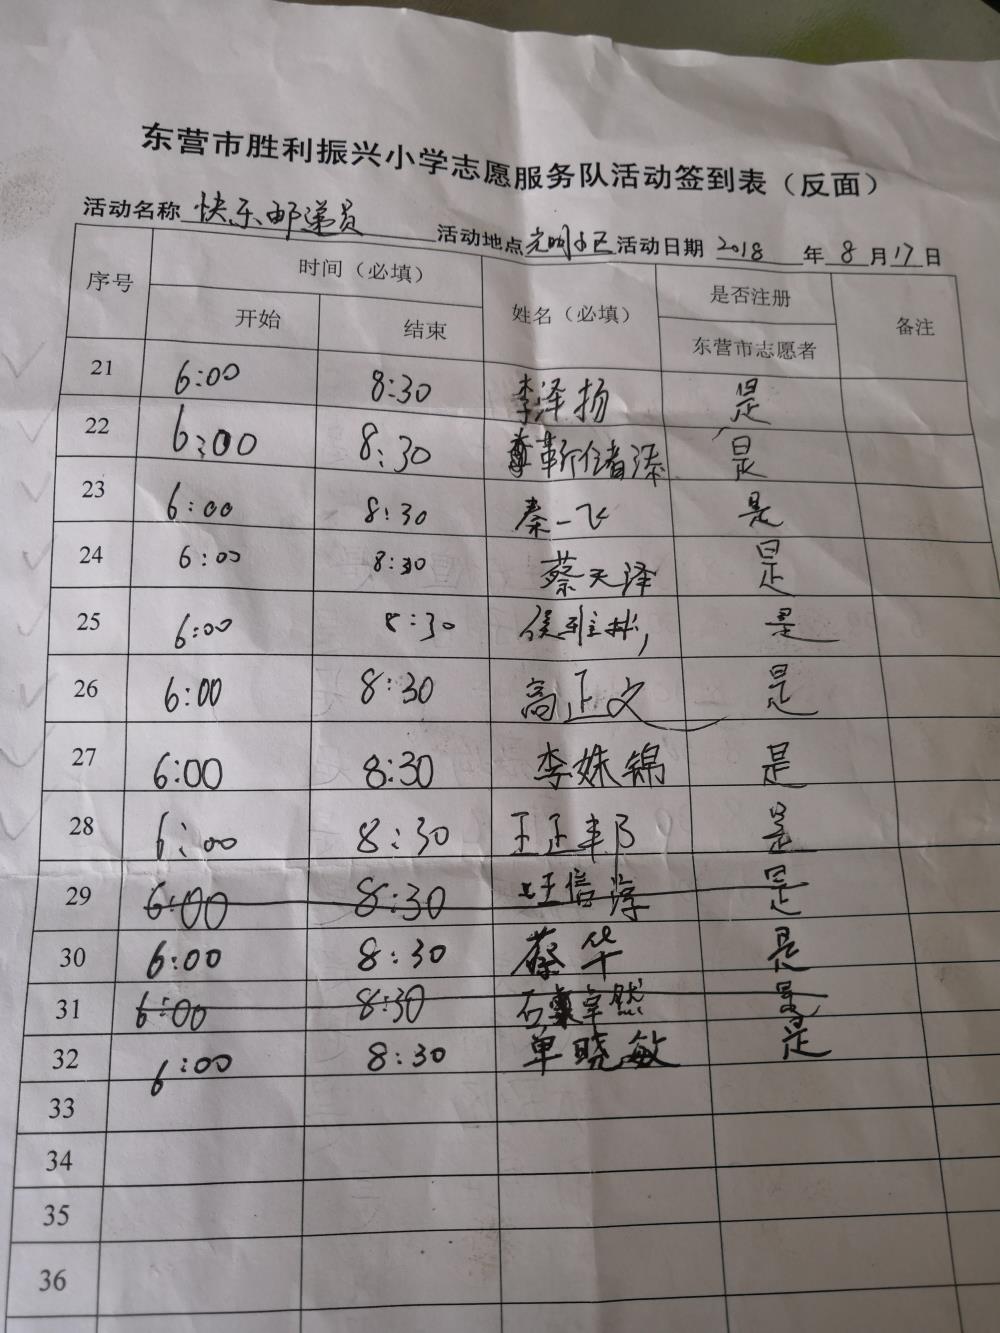 东营市胜利振兴小学志愿服务队活动签到表（反面）
活动名称 快乐邮递员 活动地点 光明小区 活动日期 2018 年 8 月 17 日
序号 时间（必填） 姓名（必填） 是否注册 备注
开始 结束 东营市志愿者
21 6:00 8:30 李泽扬 是
22 6:00 8:30 是
23 6:00 8:30 秦一飞 是
24 6:00 8:30 蔡天泽 是
25 6:00 8:30 是
26 6:00 8:30 高正文 是
27 6:00 8:30 李姝锦 是
28 6:00 8:30 王正丰 是
29 6:00 8:30 汪信淳 是
30 6:00 8:30 蔡华 是
31 6:00 8:30 石卓然 是
32 6:00 8:30 单晓敏 是
33
34
35
36